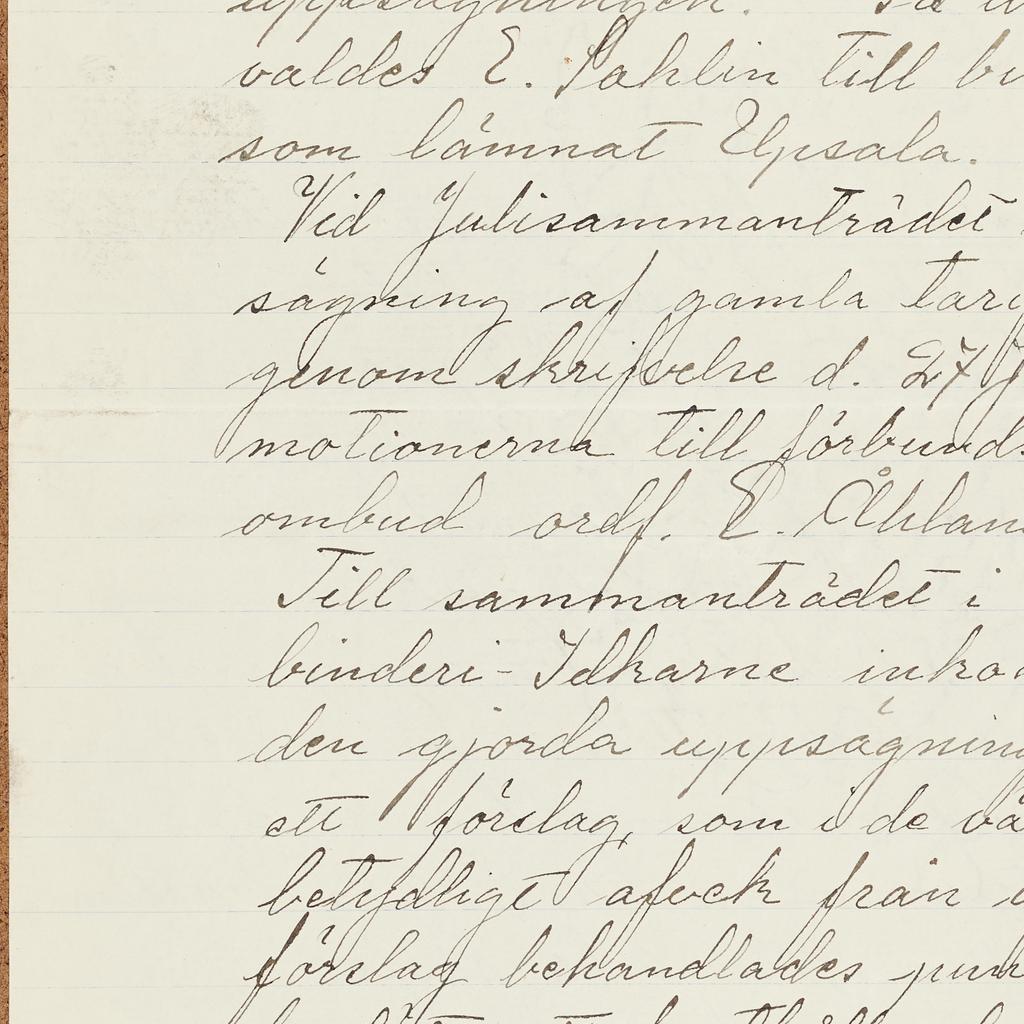 uppsägningen.
valdes E. Sahlin till
som lämnat Upsala.
Vid Julisammanträdet
sägning af gamla
genom skrifvelse d. 27
motionerna till förbunds
ombud ordf. E. Åhlan
Till sammanträdet i
binderi-Idkarne inko
den gjorda uppsägning
ett förslag, som i de vä
betydligt afvek från
förslag behandlades